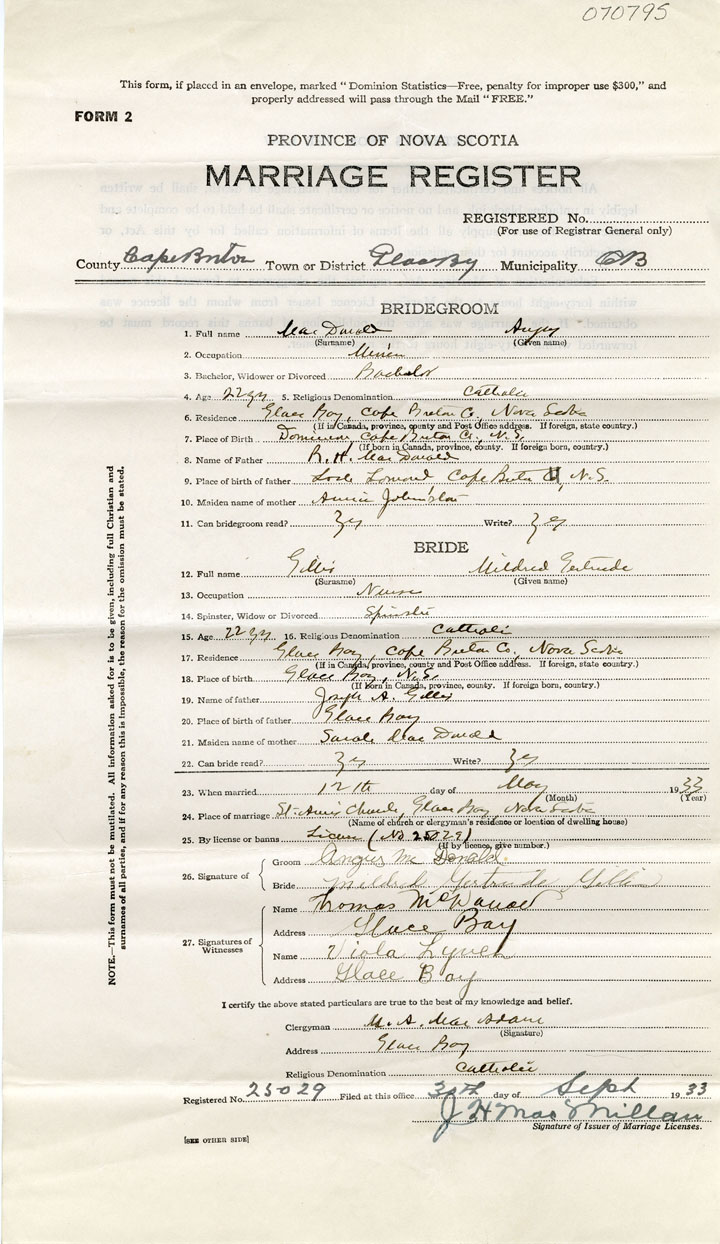 070795
This form, if placed in an envelope, marked "Dominion Statistics—Free, penalty for improper use $300," and
properly addressed will pass through the Mail "FREE."
FORM 2
PROVINCE OF NOVA SCOTIA
MARRIAGE REGISTER
REGISTERED No.
(For use of Registrar General only)
County Cape Breton Town or District Glace Bay Municipality CB
BRIDEGROOM
1. Full name MacDonald Angus
(Surname) (Given name)
2. Occupation Miner
3. Bachelor, Widower or Divorced Bachelor
4. Age 22 yrs 5. Religious Denomination Catholic
6. Residence Glace Bay, Cape Breton Co., Nova Scotia
(If in Canada, province, county and Post Office address. If foreign, state country.)
7. Place of Birth Dominion Cape Breton Co., N.S.
(If born in Canada, province, county. If foreign born, country.)
8. Name of Father R. H. MacDonald
9. Place of birth of father Loch Lomond, Cape Breton Co, N.S.
10. Maiden name of mother Annie Johnston
11. Can bridegroom read? Yes Write? Yes
BRIDE
12. Full name Gillis Mildred Gertrude
(Surname) (Given name)
13. Occupation Nurse
14. Spinster, Widow or Divorced Spinster
15. Age 22 yrs 16. Religious Denomination Catholic
17. Residence Glace Bay, Cape Breton Co., Nova Scotia
(If in Canada, province, county and Post Office address. If foreign, state country.)
18. Place of birth Glace Bay, N.S.
(If born in Canada, province, county. If foreign born, country.)
19. Name of father Joseph A. Gillis
20. Place of birth of father Glace Bay
21. Maiden name of mother Sarah MacDonald
22. Can bride read? Yes Write? Yes
23. When married 12th day of May 1933
(Month) (Year)
24. Place of marriage St. Anns Church, Glace Bay, Nova Scotia
(Name of church or clergyman's residence or location of dwelling house)
25. By license or banns License (No 25029)
(If by licence, give number.)
26. Signature of
Groom Angus McDonald
Bride Mildred Gertrude Gillis
27. Signatures of Witnesses
Name Thomas McDonald
Address Glace Bay
Name Viola Lynch
Address Glace Bay
I certify the above stated particulars are true to the best of my knowledge and belief.
Clergyman M. A. MacAdam
(Signature)
Address Glace Bay
Religious Denomination Catholic
Registered No. 25029 Filed at this office 30th day of Sept 1933
J H MacMillan
Signature of Issuer of Marriage Licenses.
[SEE OTHER SIDE]
NOTE.—This form must not be mutilated. All information asked for is to be given, including full Christian and
surnames of all parties, and if for any reason this is impossible, the reason for the omission must be stated.